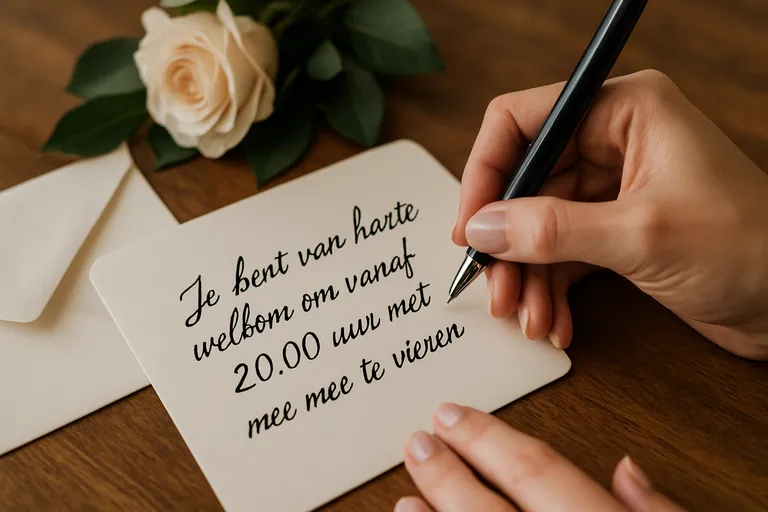 Je bent van harte
welkom om vanaf
20.00 uur met
mee mee te vieren